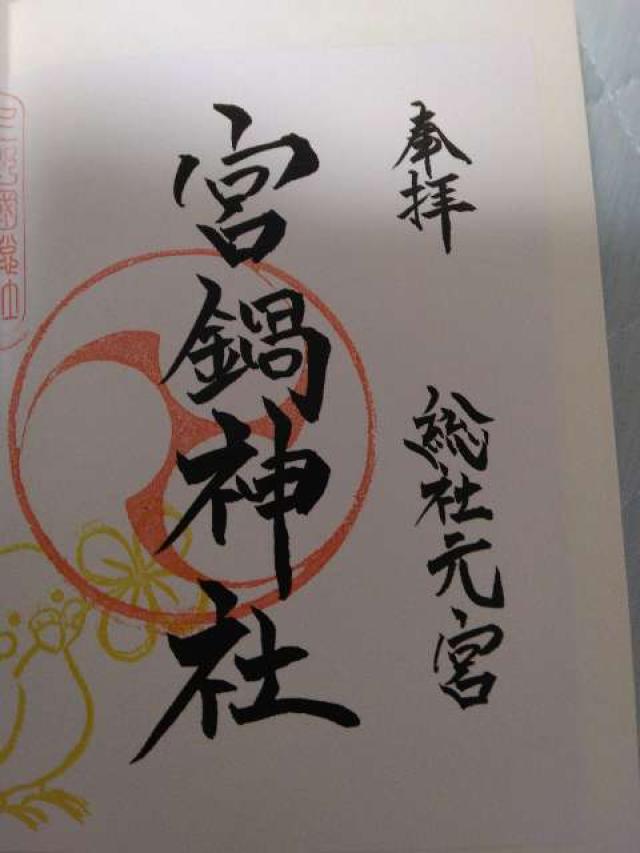 奉拝
総社元宮
宮鍋神社